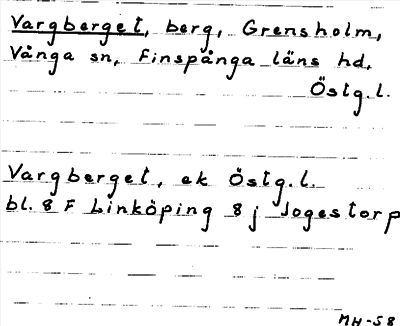 Vargberget, berg, Grensholm,
Vånga sn, Finspånga läns hd,
Östg.l.
Vargberget, ek Östg.l.
bl. 8 F Linköping 8 j Jogestorp
MH-58